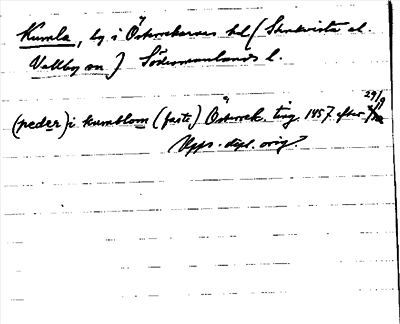 Kumla, by i Österrekarnes hd (Stenkvista el.
Vallby sn) Södermanlands l.
(peder) i kumblom (faste) Österrek. ting. 1457 efter 29/9
Upps. dipl. orig.